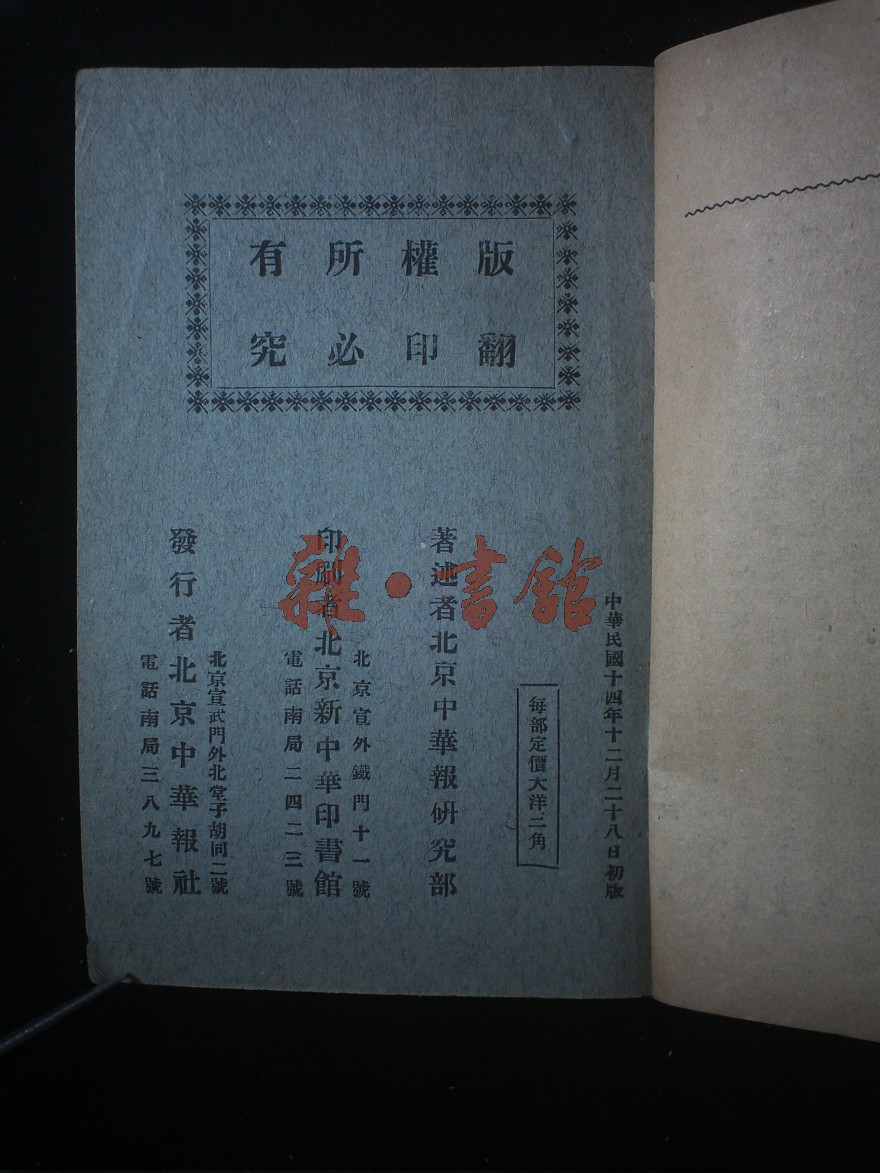 版權所有
翻印必究
中華民國十四年十二月二十八日初版
每部定價大洋三角
著述者北京中華報研究部
北京宣外鐵門十一號
印刷者北京新中華印書館
電話南局二四二三號
北京宣武門外北堂子胡同二號
發行者北京中華報社
電話南局三八九七號
雜·書館